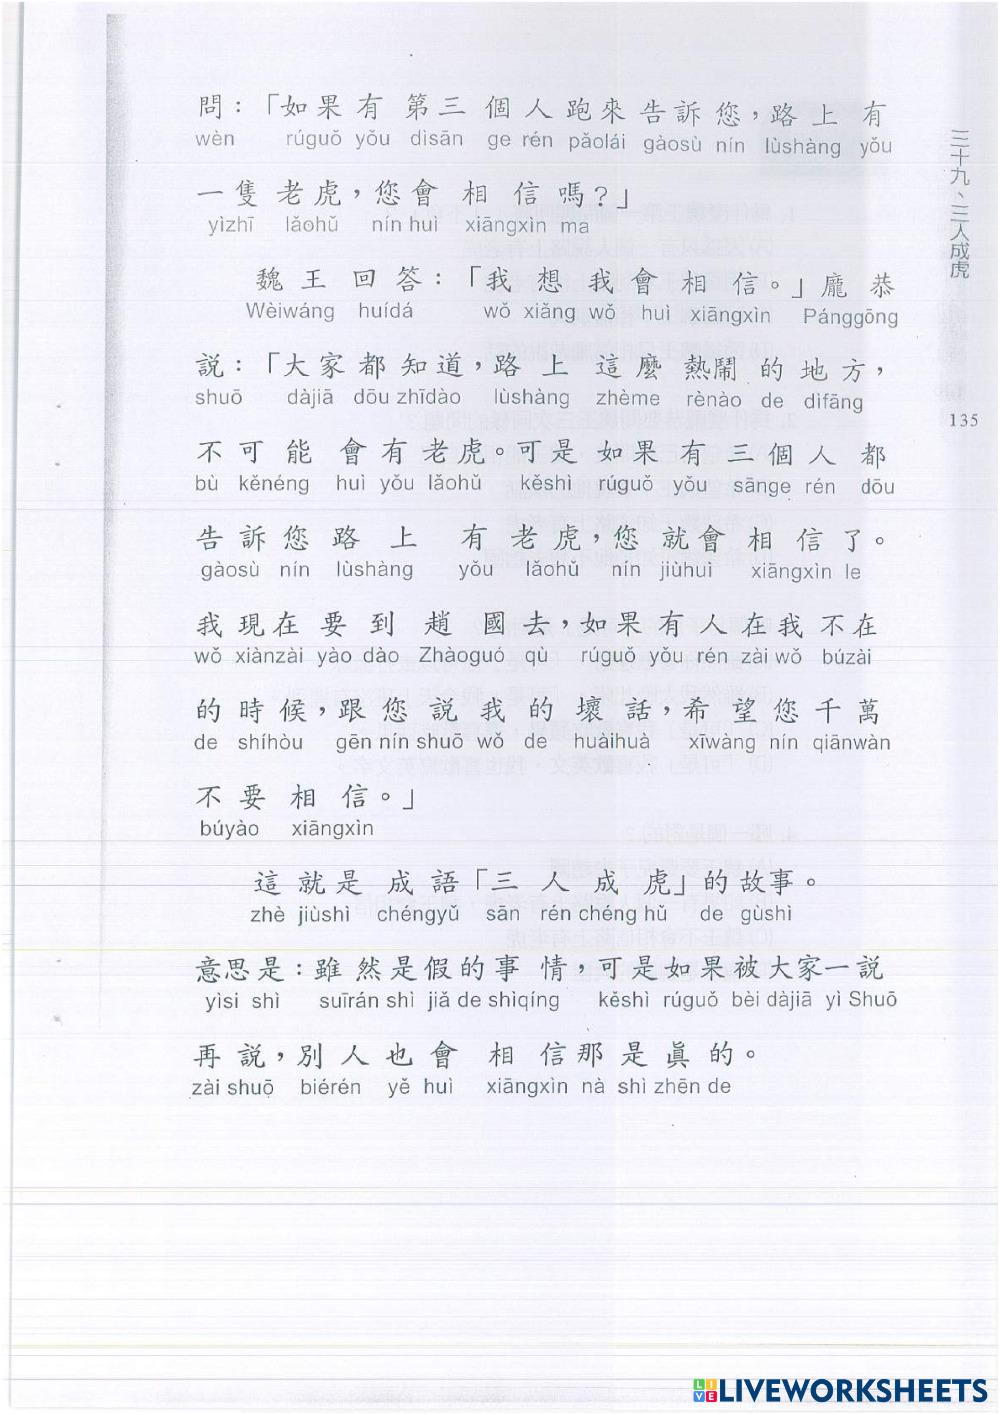 問：「如果有第三個人跑來告訴您，路上有
wèn rúguǒ yǒu dìsān ge rén pǎolái gàosù nín lùshàng yǒu
一隻老虎，您會相信嗎？」
yìzhī lǎohǔ nín huì xiāngxìn ma
魏王回答：「我想我會相信。」龐恭
Wèiwáng huídá wǒ xiǎng wǒ huì xiāngxìn Pánggōng
說：「大家都知道，路上這麼熱鬧的地方，
shuō dàjiā dōu zhīdào lùshàng zhème rènào de dìfāng
不可能會有老虎。可是如果有三個人都
bù kěnéng huì yǒu lǎohǔ kěshì rúguǒ yǒu sānge rén dōu
告訴您路上有老虎，您就會相信了。
gàosù nín lùshàng yǒu lǎohǔ nín jiùhuì xiāngxìn le
我現在要到趙國去，如果有人在我不在
wǒ xiànzài yào dào Zhàoguó qù rúguǒ yǒu rén zài wǒ búzài
的時候，跟您說我的壞話，希望您千萬
de shíhòu gēn nín shuō wǒ de huàihuà xīwàng nín qiānwàn
不要相信。」
búyào xiāngxìn
這就是成語「三人成虎」的故事。
zhè jiùshì chéngyǔ sān rén chéng hǔ de gùshì
意思是：雖然是假的事情，可是如果被大家一說
yìsi shì suīrán shì jiǎ de shìqíng kěshì rúguǒ bèi dàjiā yì Shuō
再說，別人也會相信那是真的。
zài shuō biérén yě huì xiāngxìn nà shì zhēn de
三十九、三人成虎
135
LIVEWORKSHEETS